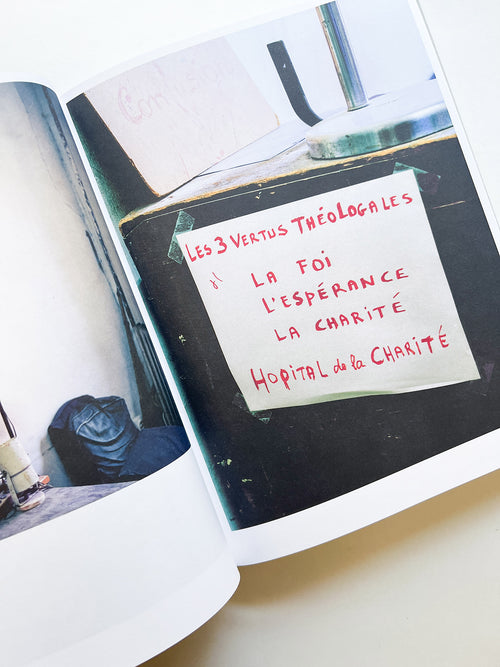 Confusion
LES 3 VERTUS THÉOLOGALES
LA FOI
L'ESPÉRANCE
LA CHARITÉ
HOPITAL de la CHARITÉ